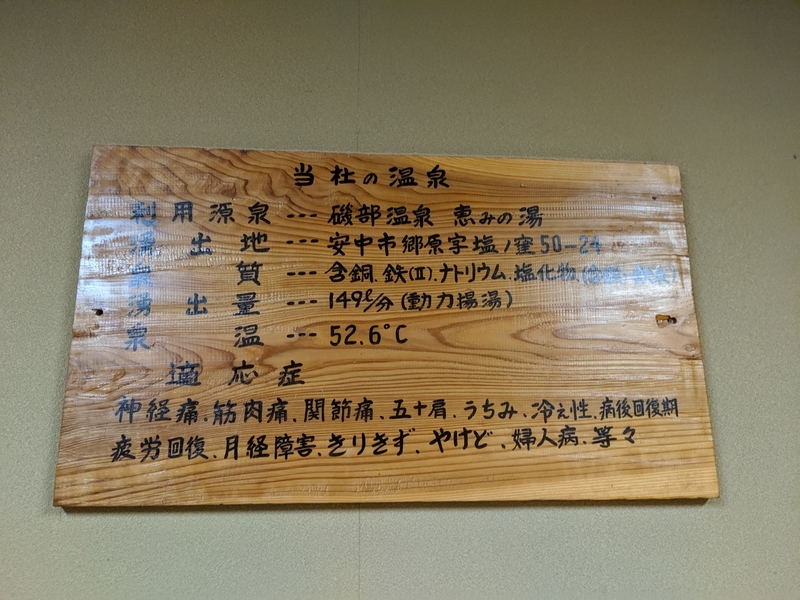 当社の温泉
利用源泉---磯部温泉 恵みの湯
湧出地---安中市郷原字塩ノ窪50-24
泉質---含銅.鉄(II).ナトリウム.塩化物.
湧出量---149ℓ/分(動力揚湯)
泉温---52.6°C
適応症
神経痛.筋肉痛.関節痛.五十肩.うちみ.冷え性.病後回復期
疲労回復.月経障害.きりきず.やけど.婦人病.等々